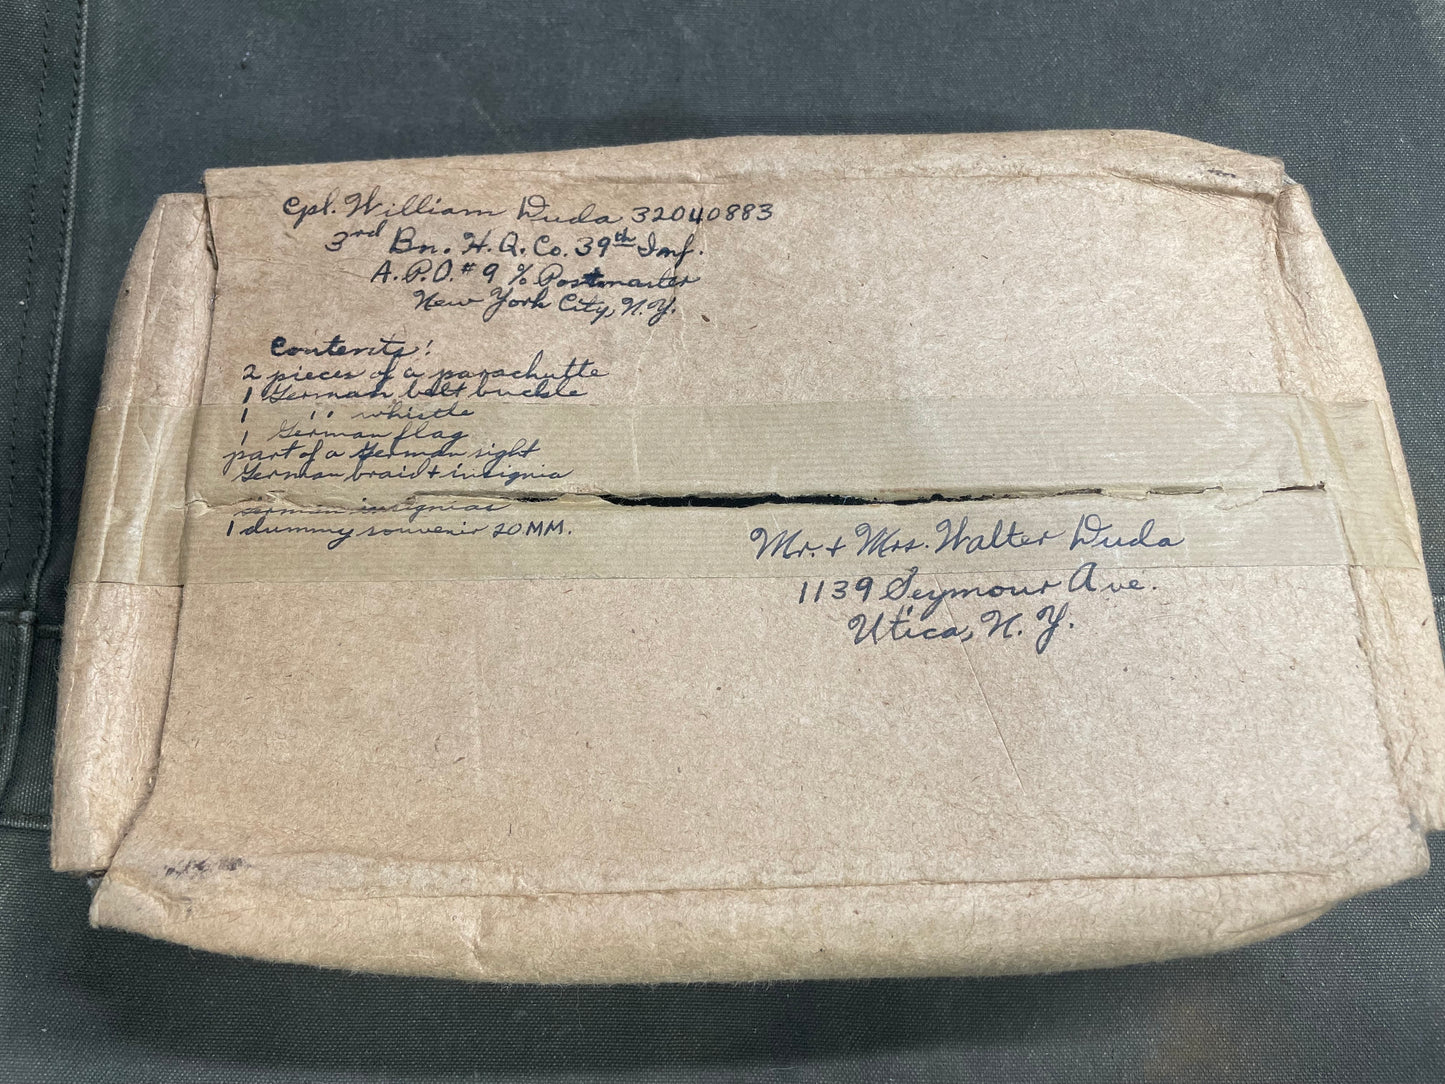 Cpl. William Duda 32040883
3rd Bn. H.Q. Co. 39th Inf.
A.P.O. #9 % Postmaster
New York City, N.Y.
Contents:
2 pieces of a parachutte
1 German belt buckle
1 " whistle
1 German flag
part of a German sight
German braid + insignia
German insignias
1 dummy souvenir 20 MM.
Mr. + Mrs. Walter Duda
1139 Seymour Ave.
Utica, N. Y.